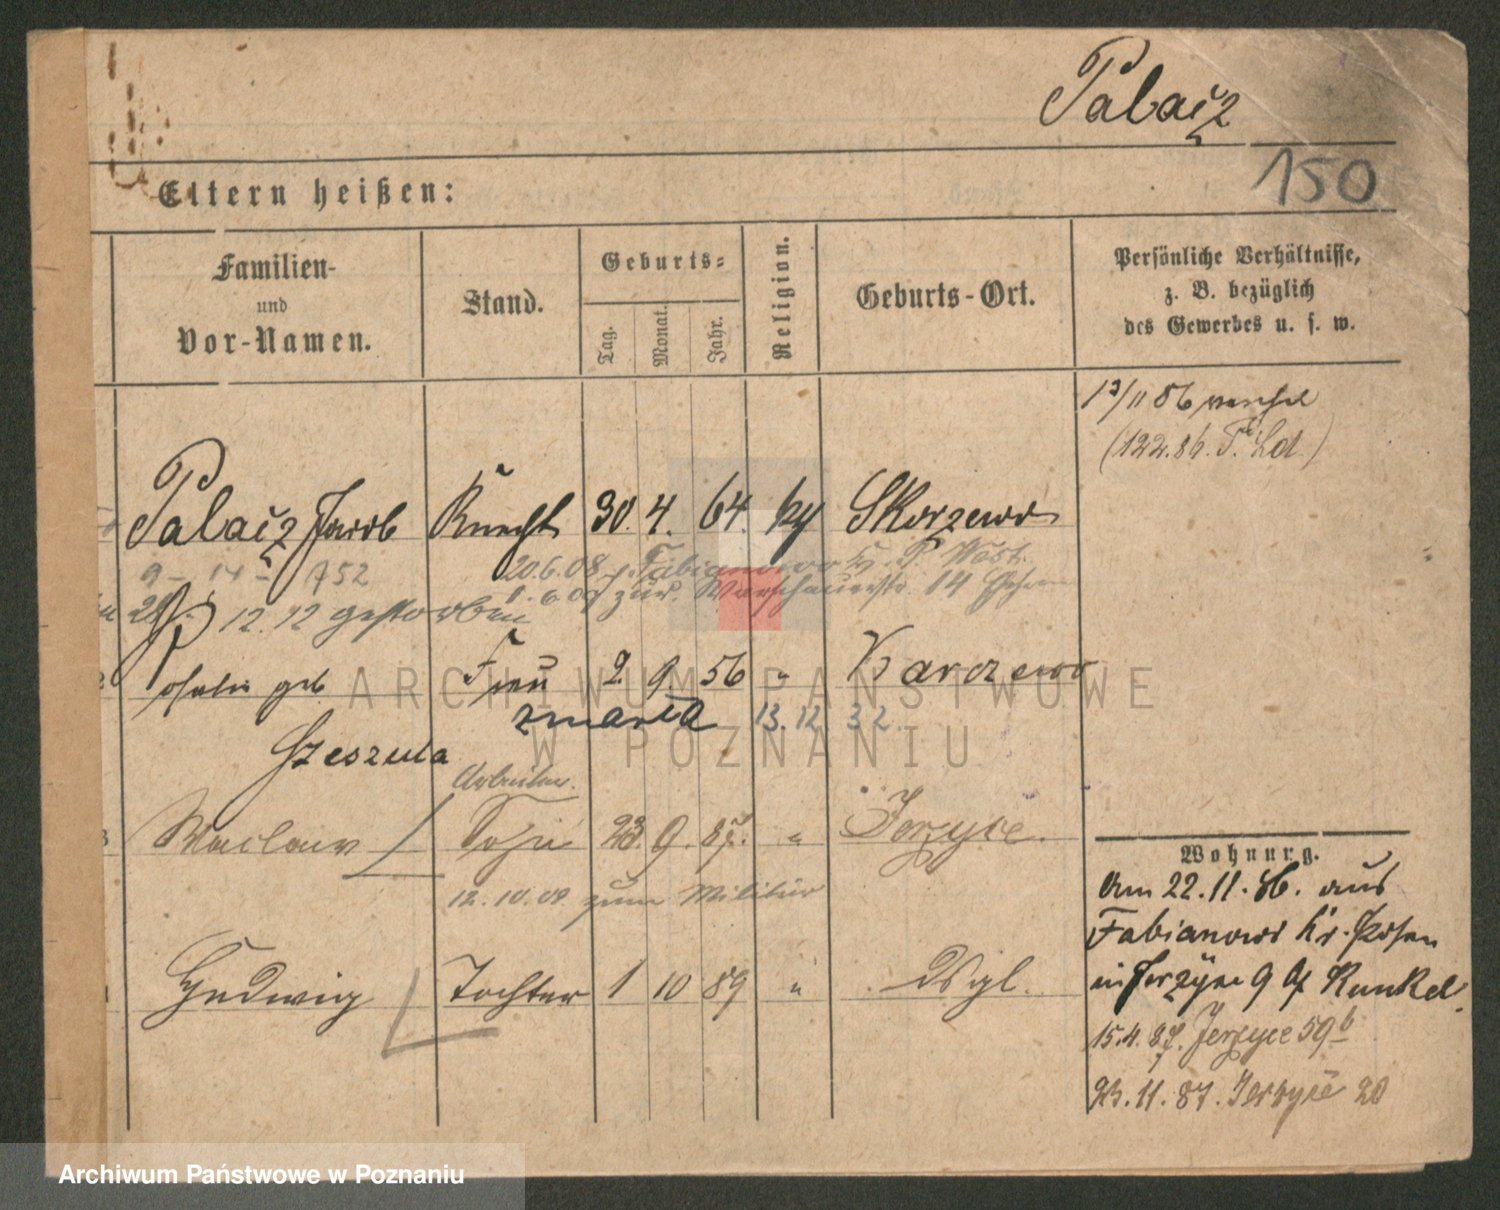 Palacz
150
Eltern heißen:
Familien-
und
Vor-Namen.
Stand.
Geburts-
Tag.
Monat.
Jahr.
Religion.
Geburts-Ort.
Persönliche Verhältnisse,
z. B. bezüglich
des Gewerbes u. s. w.
13/11 86
(122.86.
Palacz Jacob Knecht 30. 4. 64. Skorzewo
9 - 14 - 152
20.6.08 Fabianowo
12.12 gestorben
zur. Warschauerstr. 14
geb. Frau 2. 9. 56 " Karczewo
zmarła 13.12 32.
Szeszula
Arbeiter.
Waclaw Sohn 23. 9. 87. " Jerzyce.
12.10.09 zum Militär
Hedwig Tochter 1 10 89 " dsgl.
Wohnung.
Am 22.11.86. aus
Fabianowo Kr. Posen
in Jerzyce 9 Kunkel.
15.4.87. Jerzyce 59b
23.11.87. Jerzyce 20
ARCHIWUM PAŃSTWOWE
W POZNANIU
Archiwum Państwowe w Poznaniu